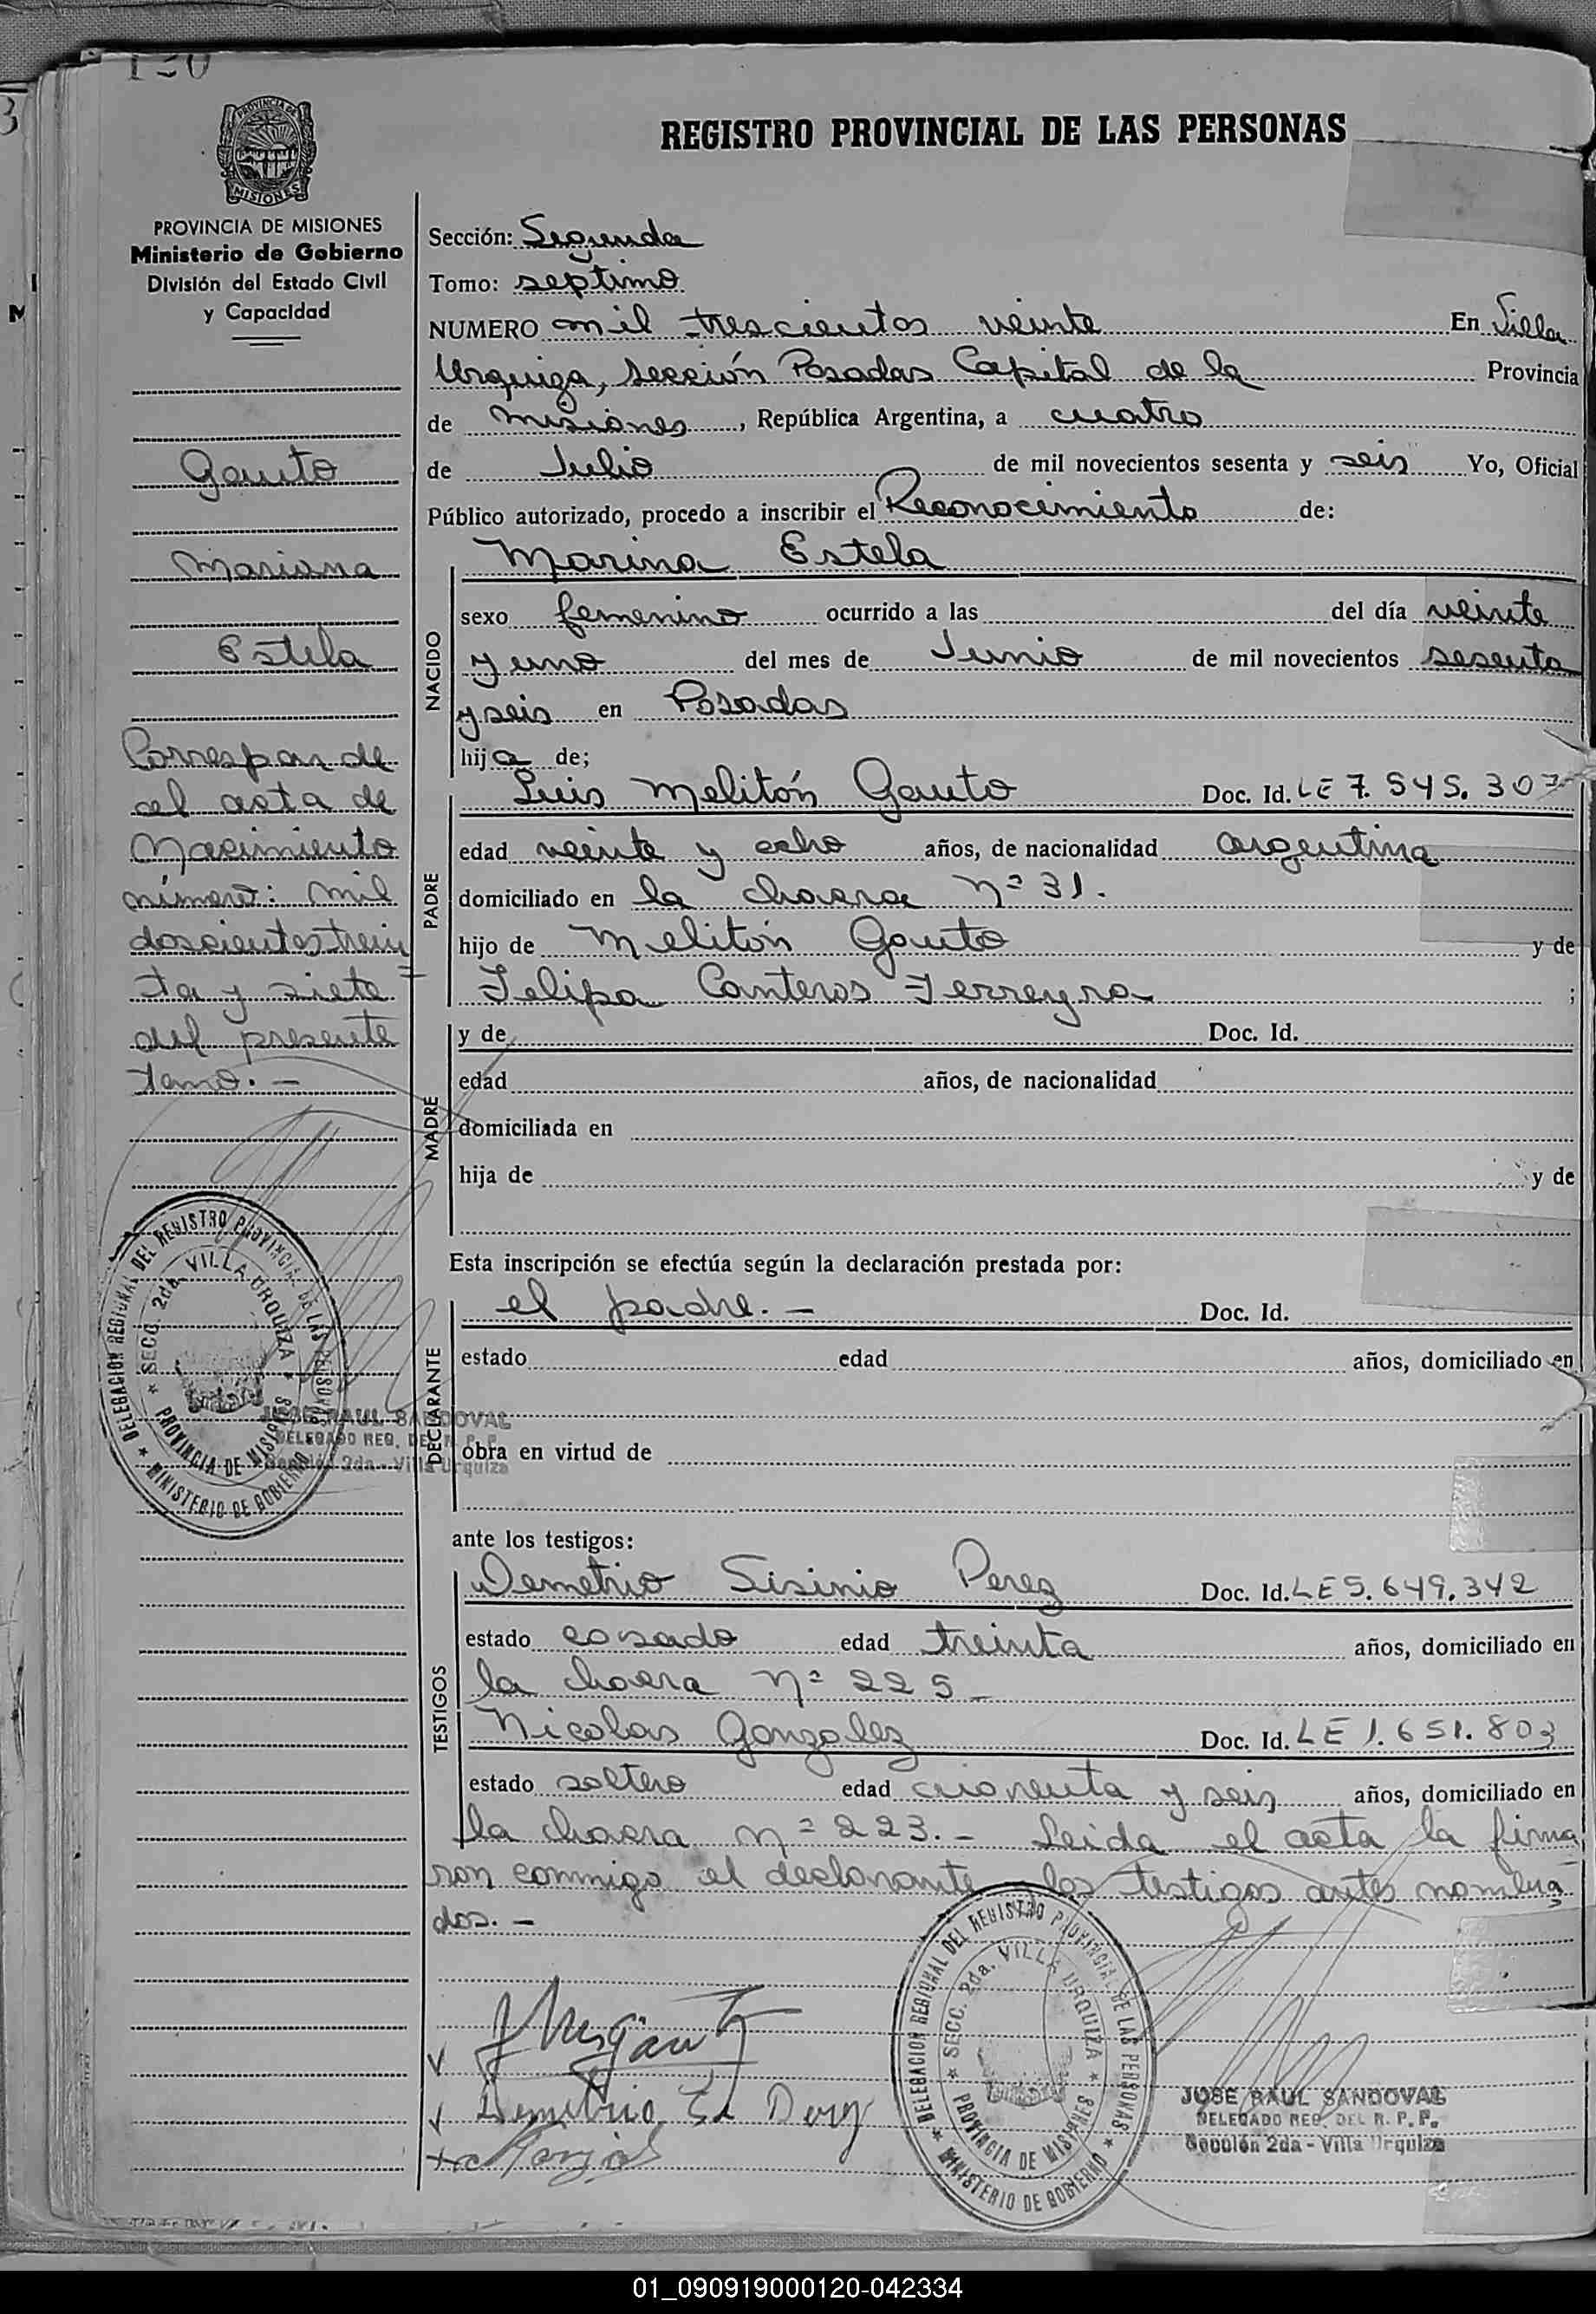 120
REGISTRO PROVINCIAL DE LAS PERSONAS
PROVINCIA DE MISIONES
PROVINCIA DE MISIONES
Ministerio de Gobierno
División del Estado Civil
y Capacidad
Gauto
Mariana
Estela
Correspon de
al acta de
Nacimiento
número: mil
doscientos trein
ta y siete =
del presente
tomo. -
Sección: Segunda
Tomo: septimo
NUMERO mil trescientos veinte En Villa
Urquiza, sección Posadas Capital de la Provincia
de Misiones, República Argentina, a cuatro
de Julio de mil novecientos sesenta y seis Yo, Oficial
Público autorizado, procedo a inscribir el Reconocimiento de:
NACIDO
Marina Estela
sexo femenino ocurrido a las del día veinte
y uno del mes de Junio de mil novecientos sesenta
y seis en Posadas
hija de;
PADRE
Luis Melitón Gauto Doc. Id. LE 7.545.307
edad veinte y ocho años, de nacionalidad argentina
domiciliado en la chacra nº 31.
hijo de Melitón Gauto y de
Felipa Canteros Ferreyra ;
MADRE
y de Doc. Id.
edad años, de nacionalidad
domiciliada en
hija de y de
Esta inscripción se efectúa según la declaración prestada por:
DECLARANTE
el padre. - Doc. Id.
estado edad años, domiciliado en
obra en virtud de
ante los testigos:
TESTIGOS
Demetrio Sisinio Perez Doc. Id. LE 5.649.342
estado casado edad treinta años, domiciliado en
la chacra nº 225 -
Nicolas Gonzalez Doc. Id. LE 1.651.803
estado soltero edad cuarenta y seis años, domiciliado en
la chacra nº 223. - Leida el acta la firma
ron conmigo el declarante y los testigos antes nombra
dos. -
DELEGACION REGIONAL DEL REGISTRO PROVINCIAL DE LAS PERSONAS
SECC. 2da. VILLA URQUIZA
PROVINCIA DE MISIONES
MINISTERIO DE GOBIERNO
JOSE RAUL SANDOVAL
DELEGADO REG. DEL R. P. P.
Sección 2da - Villa Urquiza
DELEGACION REGIONAL DEL REGISTRO PROVINCIAL DE LAS PERSONAS
SECC. 2da. VILLA URQUIZA
PROVINCIA DE MISIONES
MINISTERIO DE GOBIERNO
JOSE RAUL SANDOVAL
DELEGADO REG. DEL R. P. P.
Sección 2da - Villa Urquiza
01_090919000120-042334